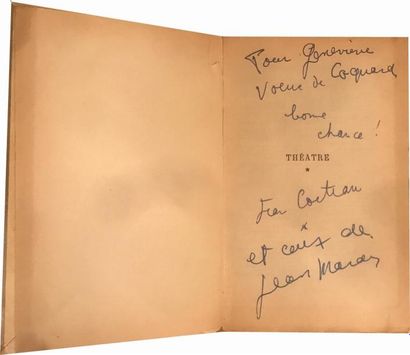 Pour Geneviève
Voeux de Coquard
bonne
chance !
THÉATRE
*
Jean Cocteau
*
et ceux de
Jean Marais